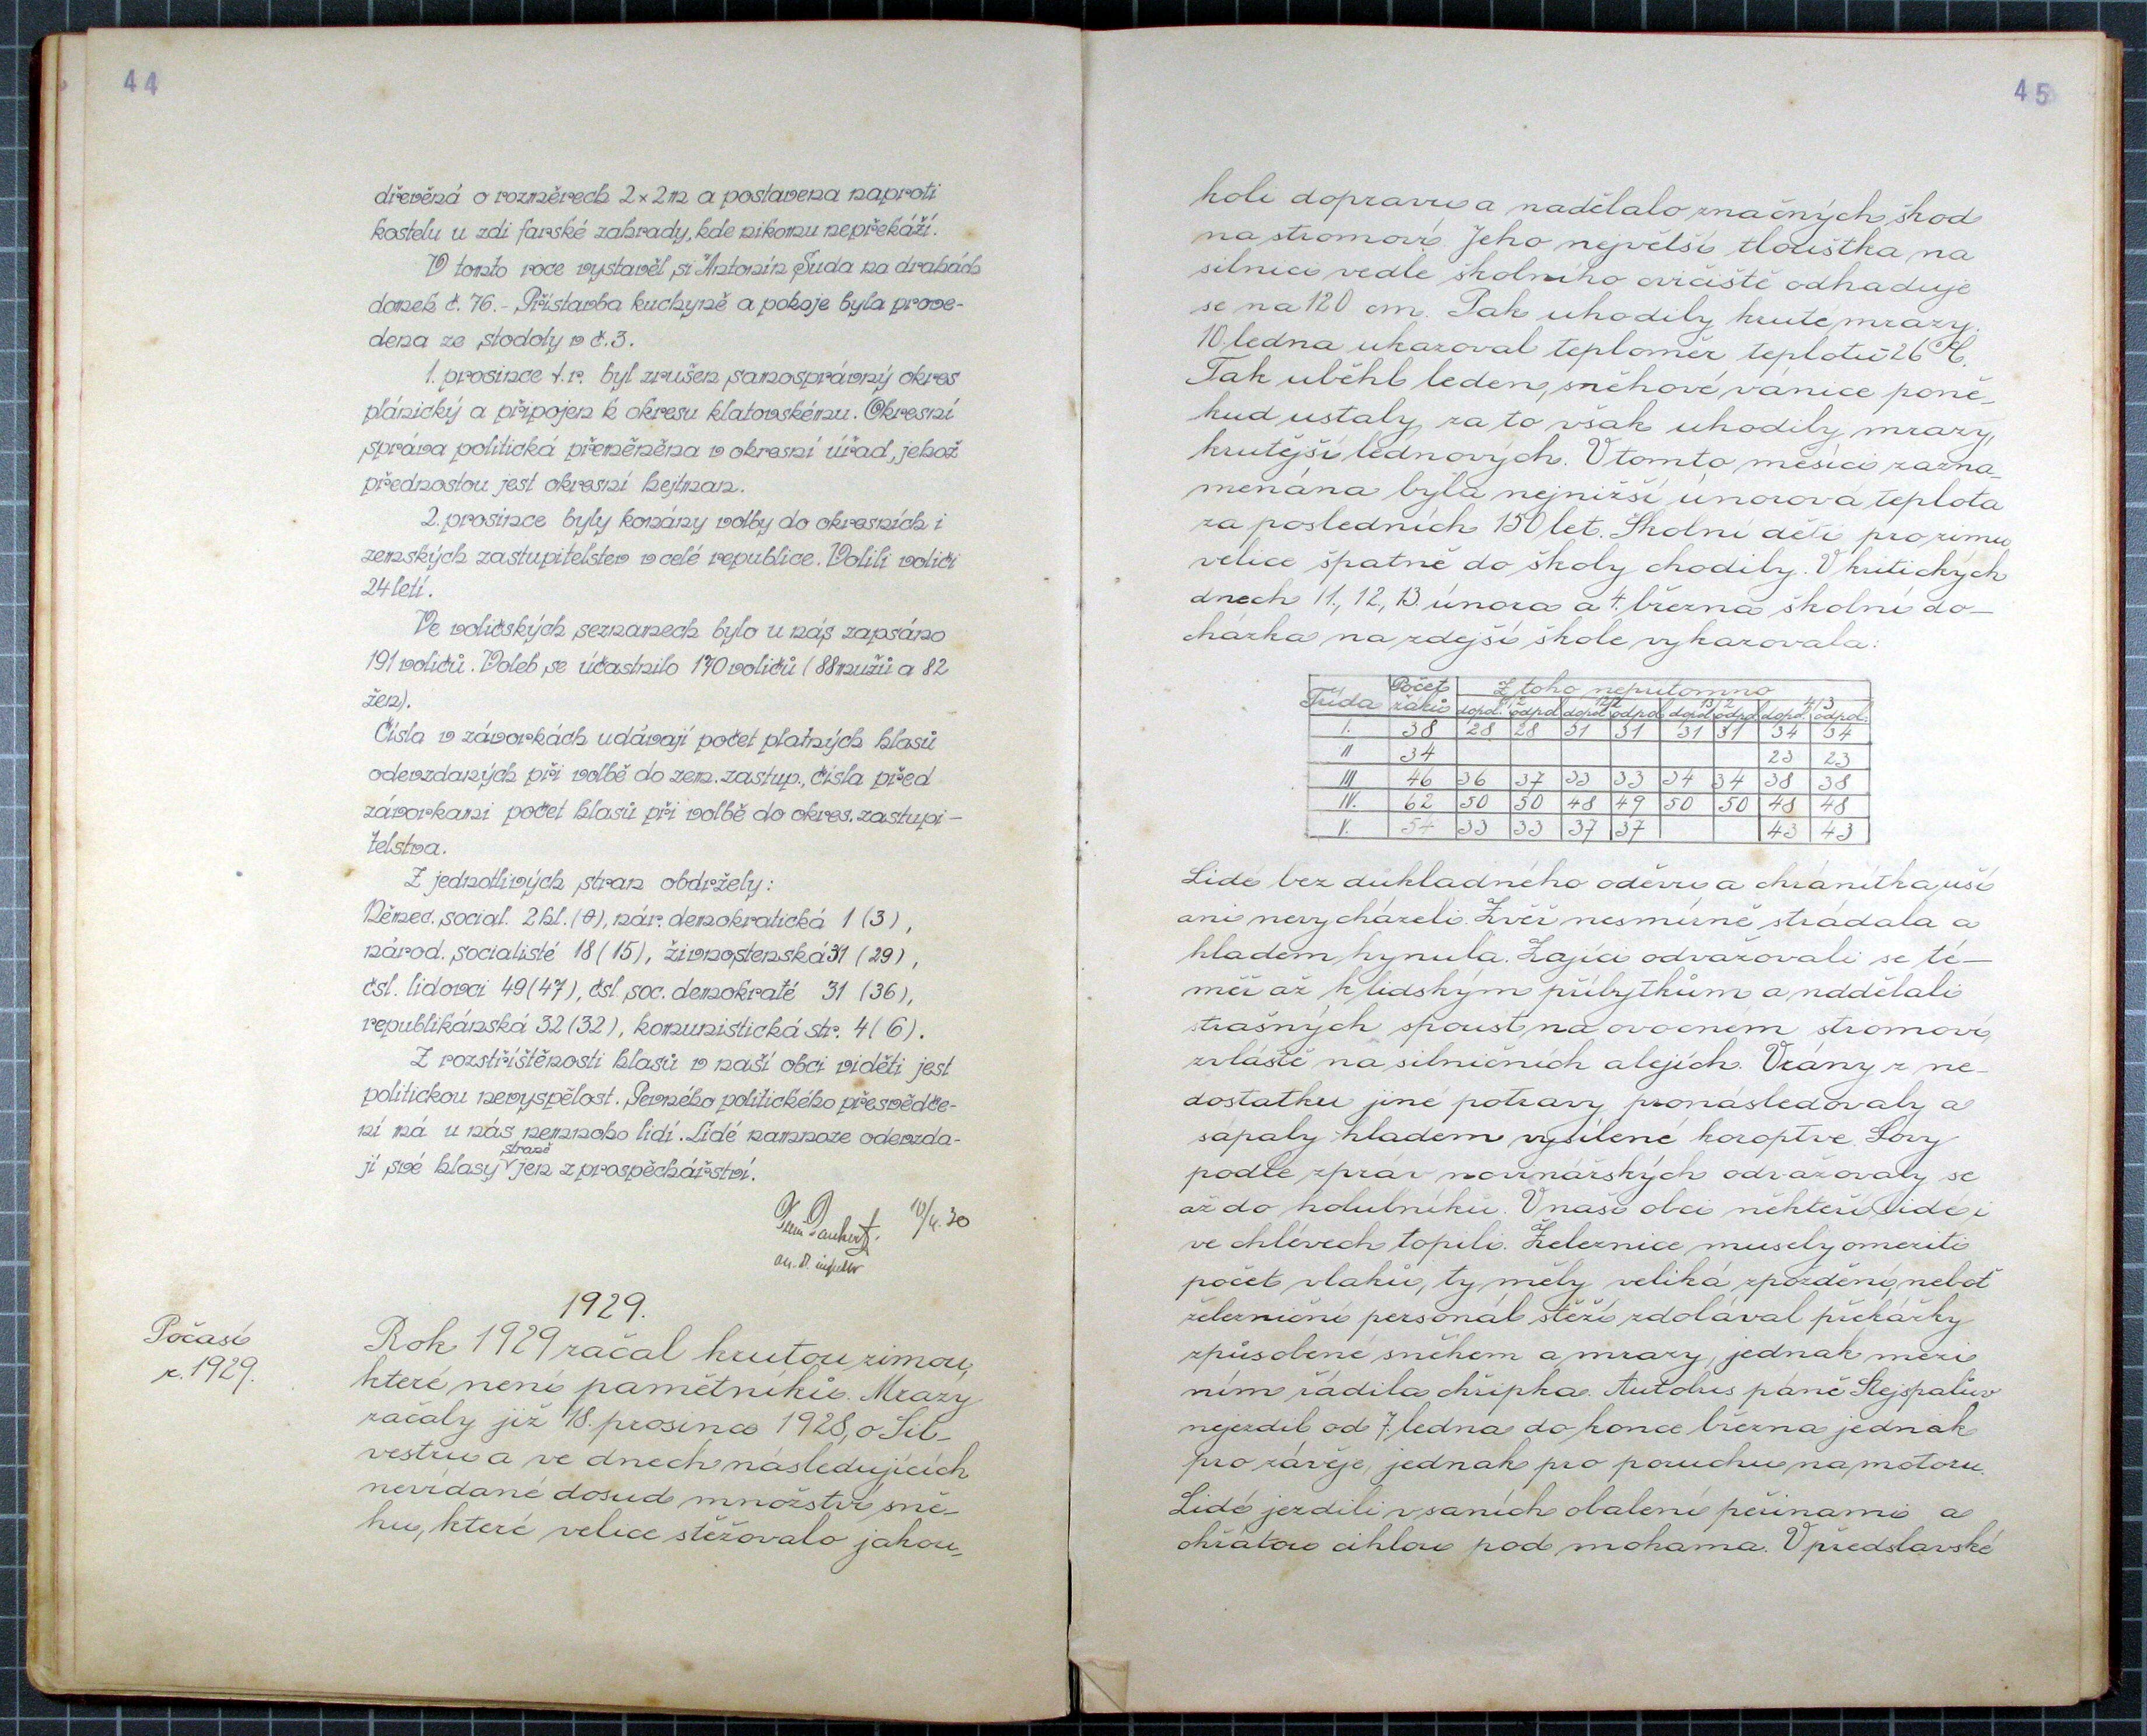 44
dřevěná o rozměrech 2×2m a postavena naproti
kostelu u zdi farské zahrady, kde nikomu nepřekáží.
V tomto roce vystavěl si Antonín Suda na drahách
domek č. 76. - Přístavba kuchyně a pokoje byla prove-
dena ze stodoly v č. 3.
1. prosince t. r. byl zrušen samosprávný okres
plánický a připojen k okresu klatovskému. Okresní
správa politická přeměněna v okresní úřad, jehož
přednostou jest okresní hejtman.
2. prosince byly konány volby do okresních i
zemských zastupitelstev v celé republice. Volili voliči
24 letí.
Ve voličských seznamech bylo u nás zapsáno
191 voličů. Voleb se účastnilo 170 voličů (88 mužů a 82
žen).
Čísla v závorkách udávají počet platných hlasů
odevzdaných při volbě do zem. zastup., čísla před
závorkami počet hlasů při volbě do okres. zastupi-
telstva.
Z jednotlivých stran obdržely:
Němec. social. 2 hl. (0), nár. demokratická 1 (3),
národ. socialisté 18 (15), živnostenská 31 (29),
čsl. lidovci 49 (47), čsl. soc. demokraté 31 (36),
republikánská 32 (32), komunistická str. 4 (6).
Z roztříštěnosti hlasů v naší obci viděti jest
politickou nevyspělost. Pevného politického přesvědče-
ní má u nás nemnoho lidí. Lidé namnoze odevzda-
straně
jí své hlasy jen z prospěchářství.
1929.
Počasí
r. 1929.
Rok 1929 začal krutou zimou,
které není pamětníků. Mrazy
začaly již 18. prosince 1928, o Sil-
vestru a ve dnech následujících
nevídané dosud množství sně-
hu, které velice stěžovalo jakou-
45
koli dopravu a nadělalo značných škod
na stromoví. Jeho největší tloušťka na
silnici vedle školního cvičiště odhaduje
se na 120 cm. Pak uhodily kruté mrazy.
10. ledna ukazoval teploměr teplotu -26°C.
Tak uběhl leden, sněhové vánice poně-
kud ustaly, za to však uhodily mrazy,
krutější lednových. V tomto měsíci zazna-
menána byla nejnižší únorová teplota
za posledních 150 let. Školní děti pro zimu
velice špatně do školy chodily. V kritických
dnech 11., 12., 13. února a 4. března školní do-
cházka na zdejší škole vykazovala:
Třída Počet žáků Z toho nepřítomno
12/2 13/2 4/3
dopol. odpol. dopol. odpol. dopol. odpol. dopol. odpol.
I. 38 28 28 31 31 31 31 34 34
II 34 23 23
III 46 36 37 33 33 34 34 38 38
IV. 62 50 50 48 49 50 50 48 48
V. 54 33 33 37 37 43 43
Lidé bez důkladného oděvu a chránítka uší
ani nevycházeli. Zvěř nesmírně strádala a
hladem hynula. Zajíci odvažovali se té-
měř až k lidským příbytkům a nadělali
strašných spoust na ovocném stromoví,
zvláště na silničních alejích. Vrány z ne-
dostatku jiné potravy pronásledovaly a
sápaly hladem vysílené koroptve. Sovy
podle zpráv novinářských odvažovaly se
až do holubníků. V naší obci někteří lidé i
ve chlévech topili. Železnice musely omeziti
počet vlaků, ty měly veliká zpoždění, neboť
železniční personál stěží zdolával překážky
způsobené sněhem a mrazy, jednak mezi
ním řádila chřipka. Autobus páně Stejspalův
nejezdil od 7. ledna do konce března jednak
pro závěje, jednak pro poruchu na motoru.
Lidé jezdili v saních obaleni peřinami a
ohřátou cihlou pod nohama. V předslavské